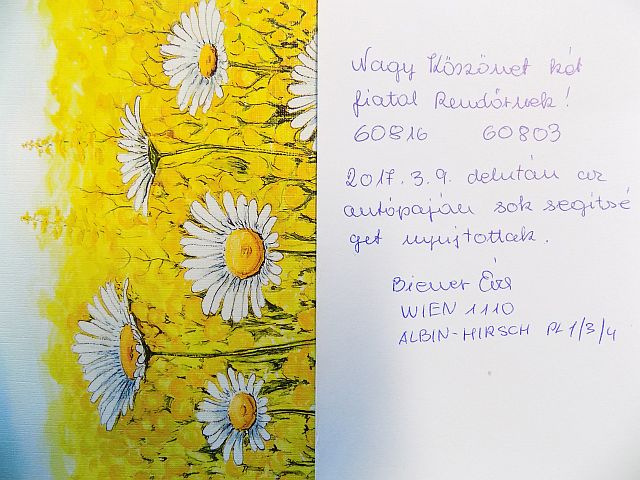 Nagy Köszönet két
fiatal Rendőrnek!
60816 60803
2017.3.9. delután az
autópaján sok segítsé
get nyujtottak.
Biener Évi
WIEN 1110
ALBIN-HIRSCH PL 1/3/4